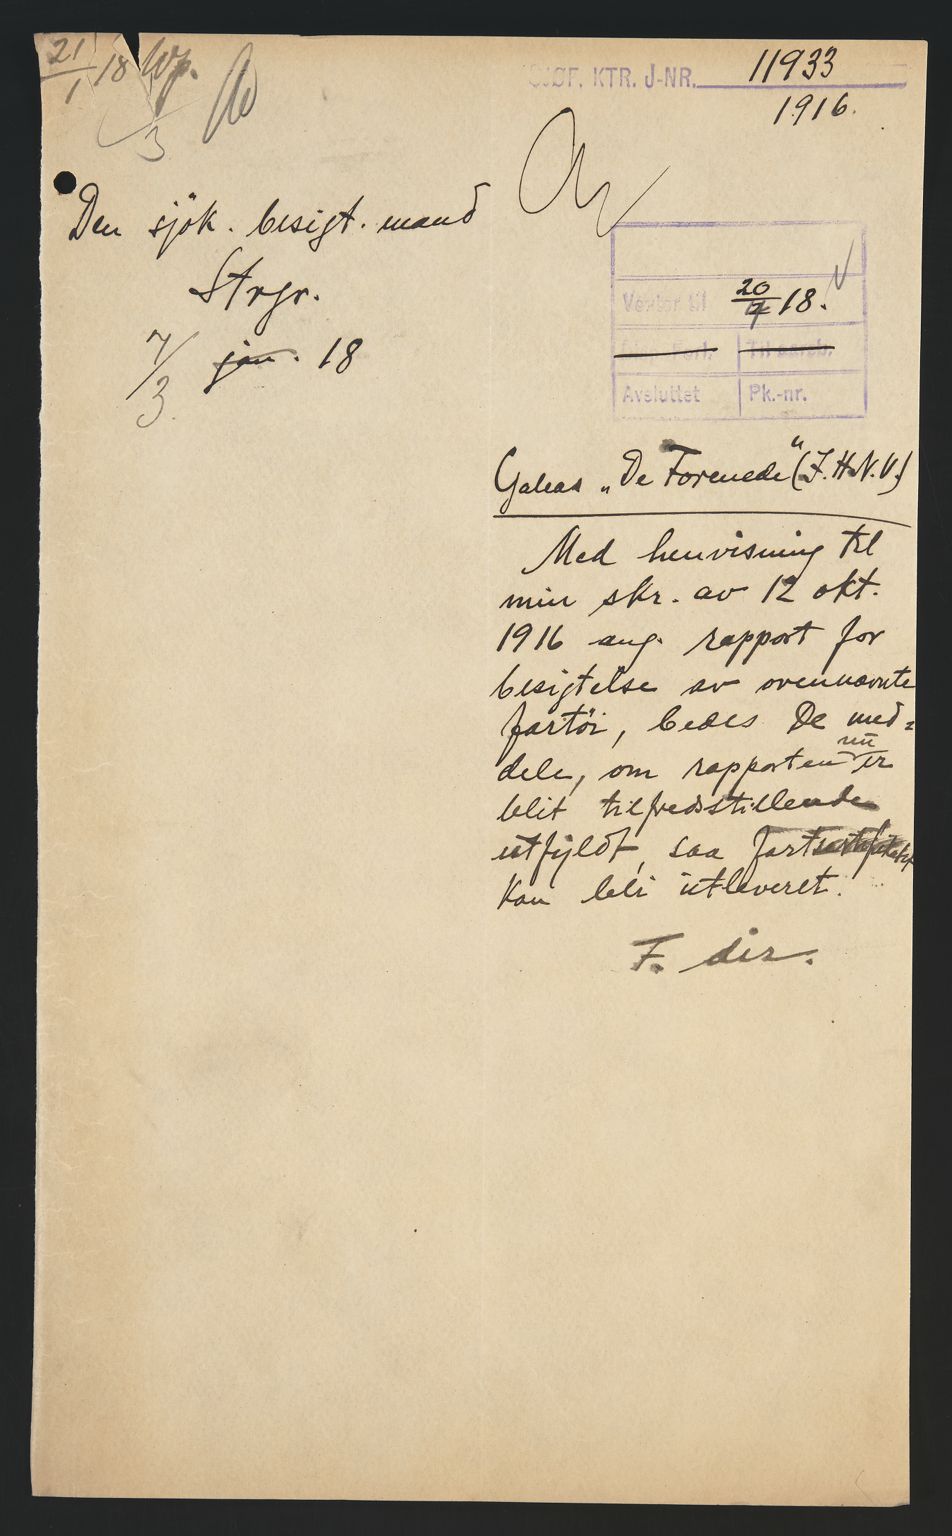 21/1 18 Wp.
3
SJØF. KTR. J-NR. 11933
1916.
Den sjök. besigt. mand
Strgr.
7/3 jan. 18
Venter til 20/4 18.
Forl. Til
Avsluttet Pk.-nr.
Galeas „De Forenede" (J.H.N.V.)
Med henvisning til
min skr. av 12 okt.
1916 ang. rapport for
besigtelse av ovennævnte
fartöi, bedes De med=
dele, om rapporten nu er
blit tilfredsstillende
utfyldt, saa fartscertifikatet
kan bli utleveret.
F. dir.